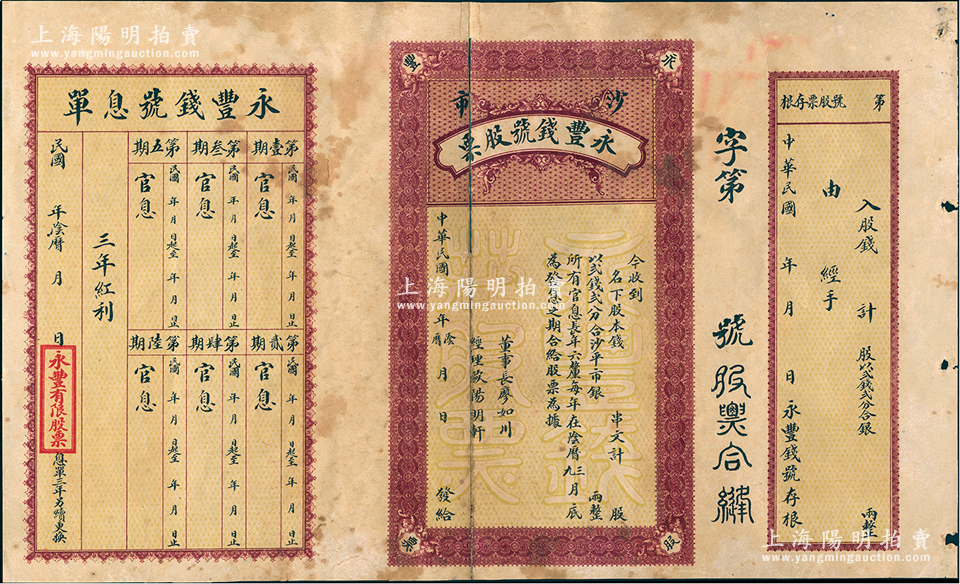 上海陽明拍賣
www.yangmingauction.com
第　號股票存根
入股錢　計　股以弍錢弍分合銀　兩整
由　經手
中華民國　年　月　日永豐錢號存根
字第　號股票合縫
永
豐
股
票
沙市
永豐錢號股票
今收到
名下股本錢　串文計　股
以弍錢弍分合沙平市銀　兩整
所有官息長年六釐每年在陰曆三九月底
為發息之期合給股票為據
董事長廖如川
經理歐陽明軒
中華民國　年陰曆　月　日　發給
上海陽明拍賣
www.yangmingauction.com
永豐錢號息單
第壹期
民國　年　月　日起至　年　月　日止
官息
第叁期
民國　年　月　日起至　年　月　日止
官息
第五期
民國　年　月　日起至　年　月　日止
官息
第貳期
民國　年　月　日起至　年　月　日止
官息
第肆期
民國　年　月　日起至　年　月　日止
官息
第陸期
民國　年　月　日起至　年　月　日止
官息
三年紅利
民國　年陰曆　月　日
永豐有限股票
息單三年另續更換
上海陽明拍賣
www.yangmingauction.com